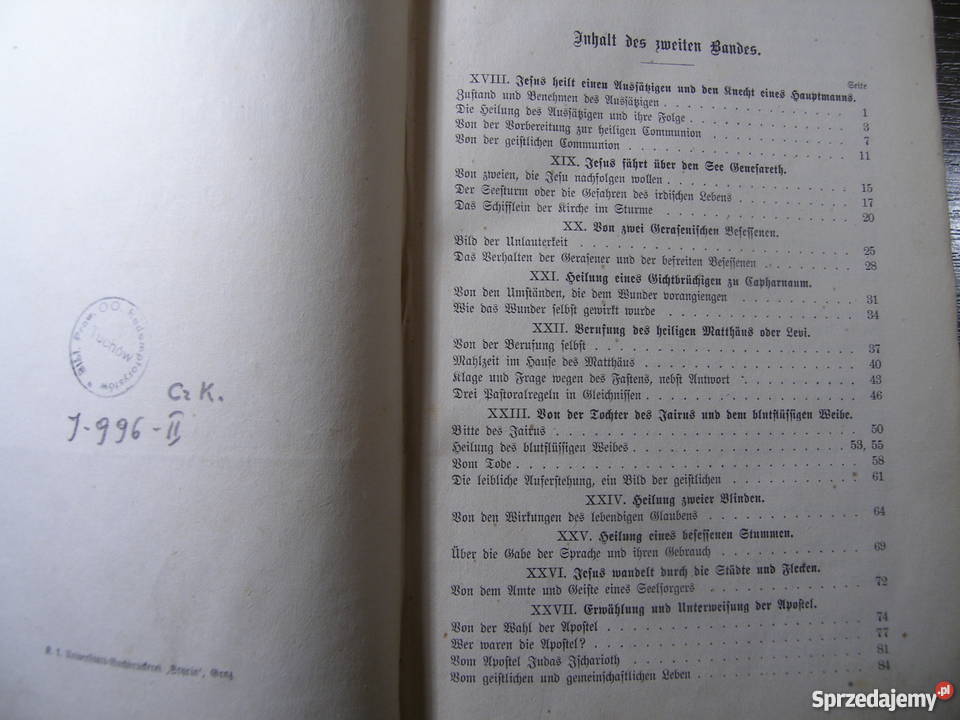 Bibl. Prow. OO. Redemptorystów
Tuchów
Cz K.
J-996-II
K. k. Universitäts-Buchdruckerei „Styria“, Graz
Inhalt des zweiten Bandes.
Seite
XVIII. Jesus heilt einen Aussätzigen und den Knecht eines Hauptmanns.
Zustand und Benehmen des Aussätzigen . . . . . . . . . . 1
Die Heilung des Aussätzigen und ihre Folge . . . . . . . . . . 3
Von der Vorbereitung zur heiligen Communion . . . . . . . . . . 7
Von der geistlichen Communion . . . . . . . . . . 11
XIX. Jesus fährt über den See Genesareth.
Von zweien, die Jesu nachfolgen wollen . . . . . . . . . . 15
Der Seesturm oder die Gefahren des irdischen Lebens . . . . . . . . . . 17
Das Schifflein der Kirche im Sturme . . . . . . . . . . 20
XX. Von zwei Gerasenischen Besessenen.
Bild der Unlauterkeit . . . . . . . . . . 25
Das Verhalten der Gerasener und der befreiten Besessenen . . . . . . . . . . 28
XXI. Heilung eines Gichtbrüchigen zu Capharnaum.
Von den Umständen, die dem Wunder vorangiengen . . . . . . . . . . 31
Wie das Wunder selbst gewirkt wurde . . . . . . . . . . 34
XXII. Berufung des heiligen Matthäus oder Levi.
Von der Berufung selbst . . . . . . . . . . 37
Mahlzeit im Hause des Matthäus . . . . . . . . . . 40
Klage und Frage wegen des Fastens, nebst Antwort . . . . . . . . . . 43
Drei Pastoralregeln in Gleichnissen . . . . . . . . . . 46
XXIII. Von der Tochter des Jairus und dem blutflüssigen Weibe.
Bitte des Jairus . . . . . . . . . . 50
Heilung des blutflüssigen Weibes . . . . . . . . . . 53, 55
Vom Tode . . . . . . . . . . 58
Die leibliche Auferstehung, ein Bild der geistlichen . . . . . . . . . . 61
XXIV. Heilung zweier Blinden.
Von den Wirkungen des lebendigen Glaubens . . . . . . . . . . 64
XXV. Heilung eines besessenen Stummen.
Über die Gabe der Sprache und ihren Gebrauch . . . . . . . . . . 69
XXVI. Jesus wandelt durch die Städte und Flecken.
Von dem Amte und Geiste eines Seelsorgers . . . . . . . . . . 72
XXVII. Erwählung und Unterweisung der Apostel.
Von der Wahl der Apostel . . . . . . . . . . 74
Wer waren die Apostel? . . . . . . . . . . 77
Vom Apostel Judas Ischarioth . . . . . . . . . . 81
Vom geistlichen und gemeinschaftlichen Leben . . . . . . . . . . 84
Sprzedajemy.pl